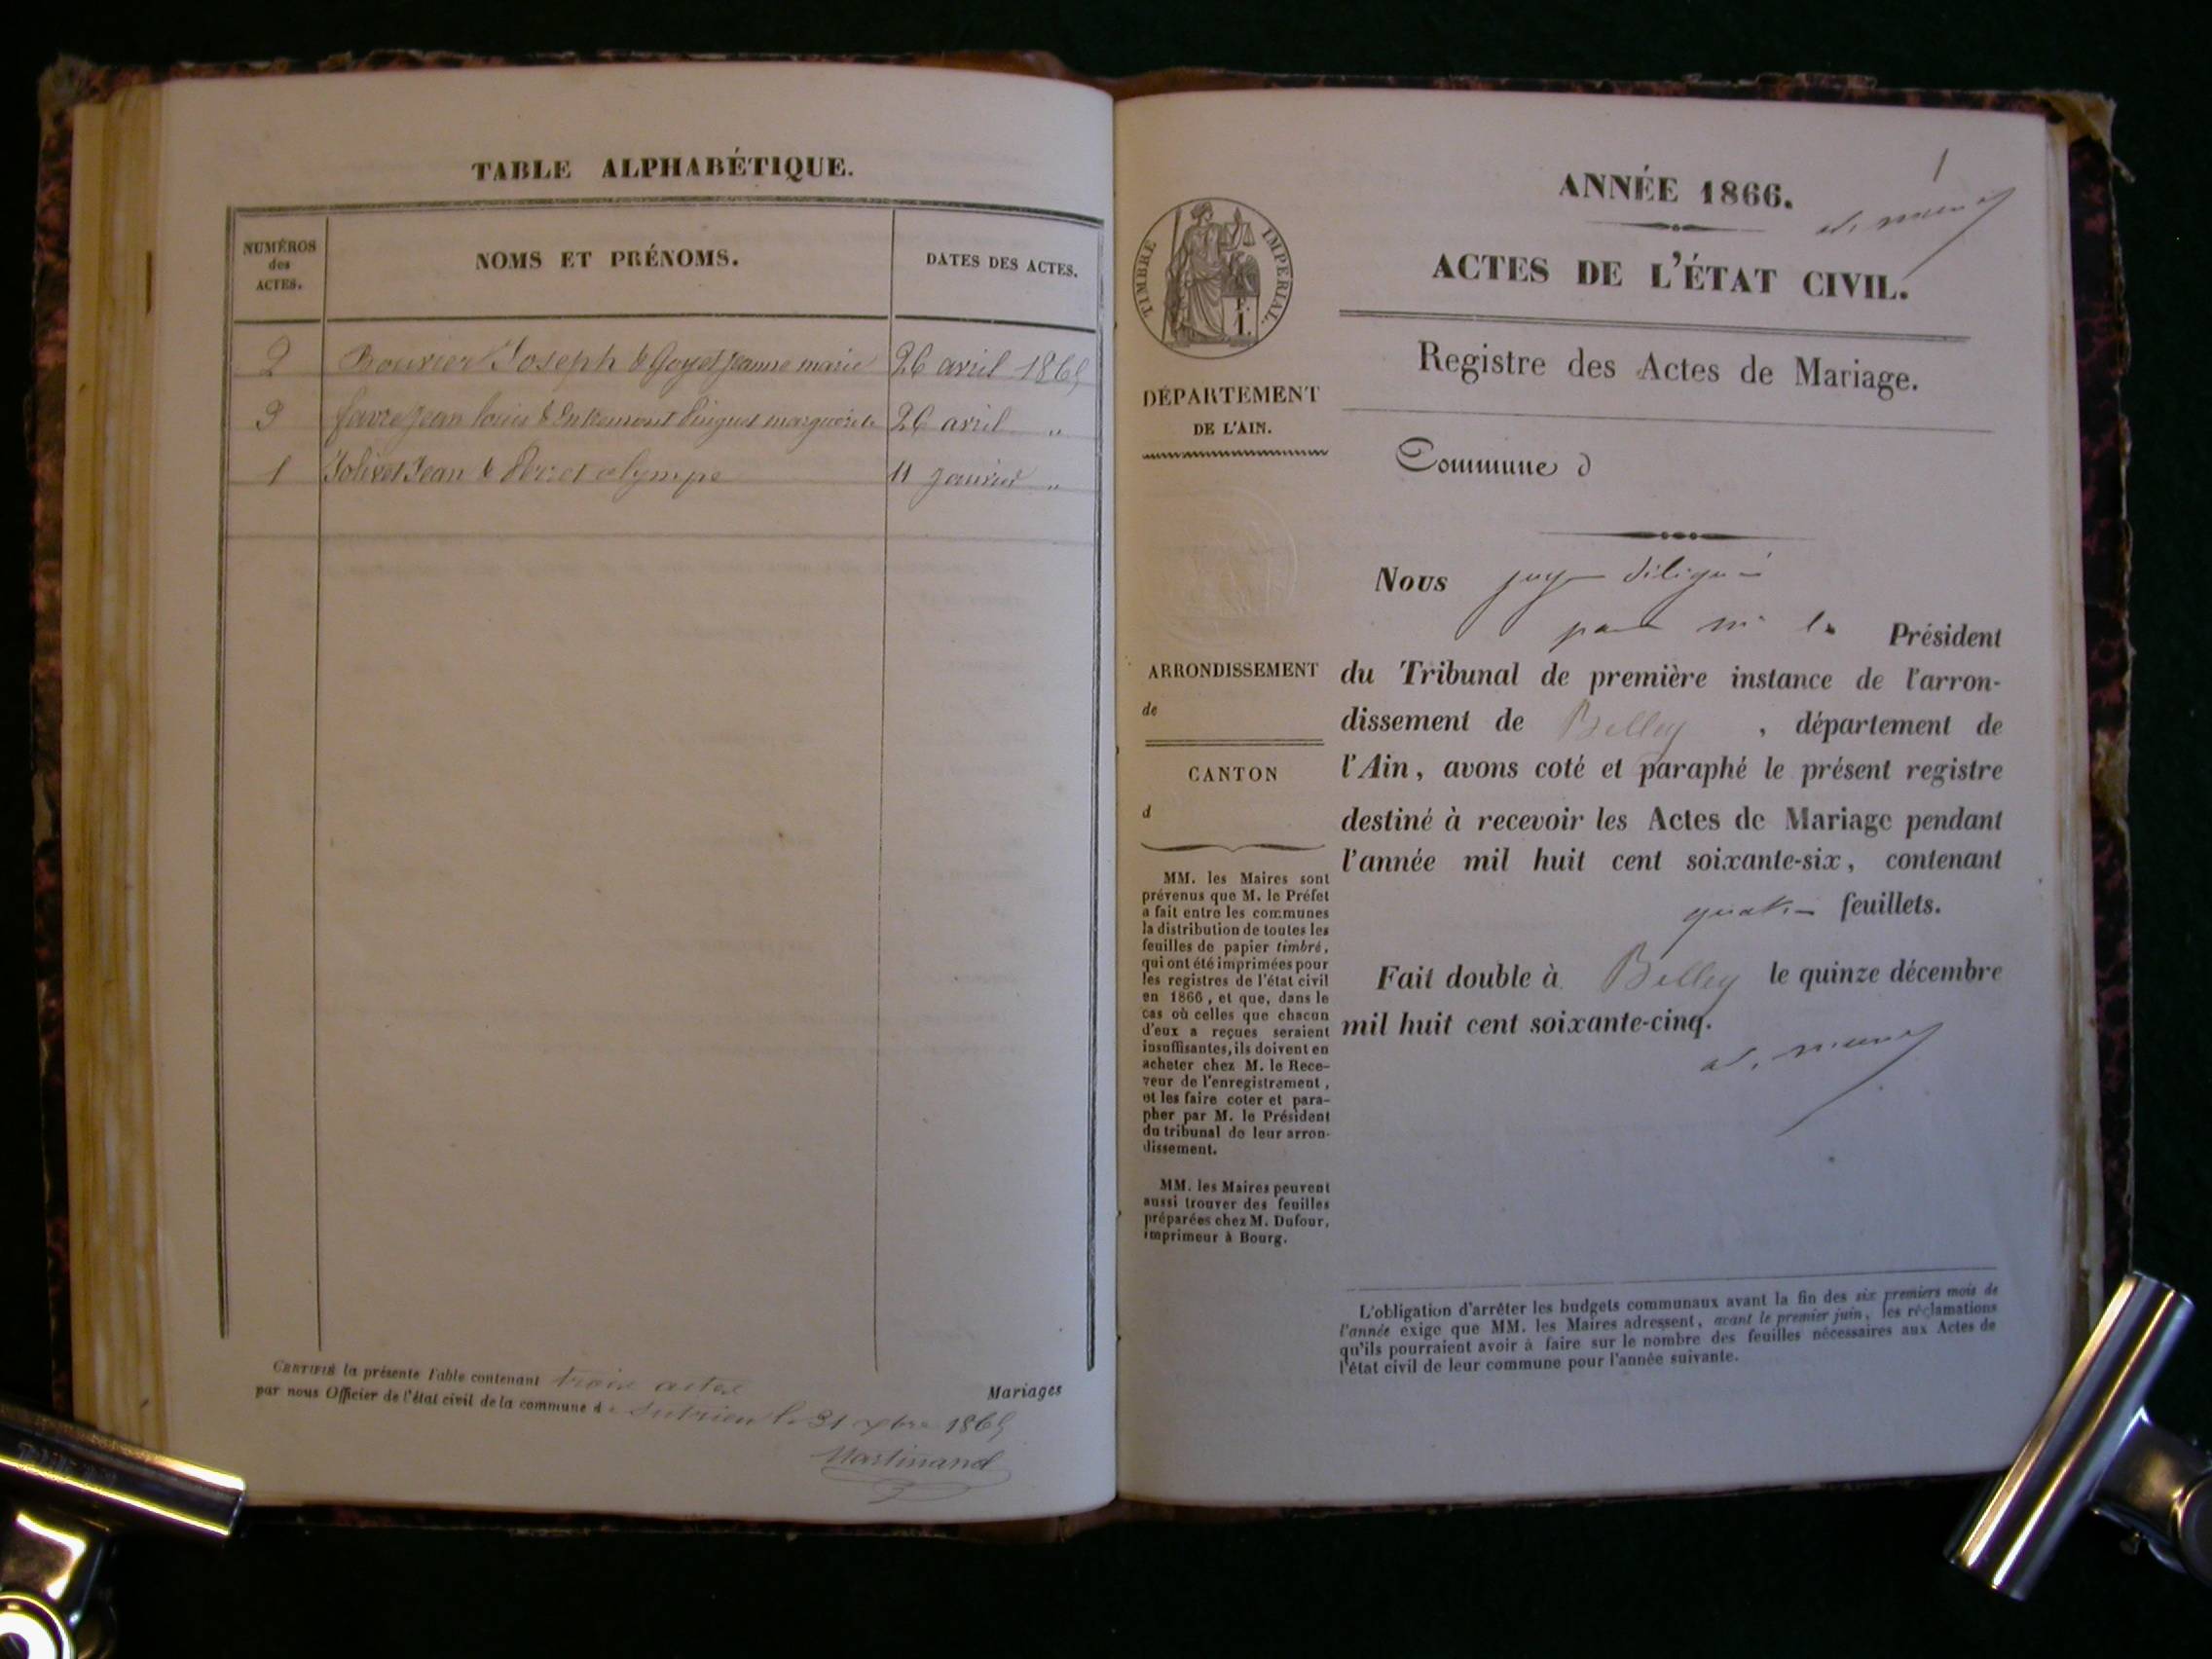 TABLE ALPHABÉTIQUE.
NUMÉROS
des
ACTES.
NOMS ET PRÉNOMS.
DATES DES ACTES.
2 Bouvier Joseph & Goyet Jeanne marie 26 avril 1865
3 favre jean louis & marguerite 26 avril "
1 Jolivet Jean & Perret olympe 11 janvier "
CERTIFIÉ la présente Table contenant trois actes Mariages
par nous Officier de l'état civil de la commune de Sutrieu le 31 xbre 1865
Martinand
1
ANNÉE 1866.
TIMBRE IMPÉRIAL.
F.
1.
ACTES DE L'ÉTAT CIVIL.
Registre des Actes de Mariage.
DÉPARTEMENT
DE L'AIN.
Commune d
Nous juge délégué
par mr le Président
du Tribunal de première instance de l'arron-
dissement de Belley , département de
l'Ain, avons coté et paraphé le présent registre
destiné à recevoir les Actes de Mariage pendant
l'année mil huit cent soixante-six, contenant
quatre feuillets.
Fait double à Belley le quinze décembre
mil huit cent soixante-cinq.
ARRONDISSEMENT
de
CANTON
d
MM. les Maires sont
prévenus que M. le Préfet
a fait entre les communes
la distribution de toutes les
feuilles de papier timbré,
qui ont été imprimées pour
les registres de l'état civil
en 1866, et que, dans le
cas où celles que chacun
d'eux a reçues seraient
insuffisantes, ils doivent en
acheter chez M. le Rece-
veur de l'enregistrement,
et les faire coter et para-
pher par M. le Président
du tribunal de leur arron-
dissement.
MM. les Maires peuvent
aussi trouver des feuilles
préparées chez M. Dufour,
imprimeur à Bourg.
L'obligation d'arrêter les budgets communaux avant la fin des six premiers mois de
l'année exige que MM. les Maires adressent, avant le premier juin, les réclamations
qu'ils pourraient avoir à faire sur le nombre des feuilles nécessaires aux Actes de
l'état civil de leur commune pour l'année suivante.